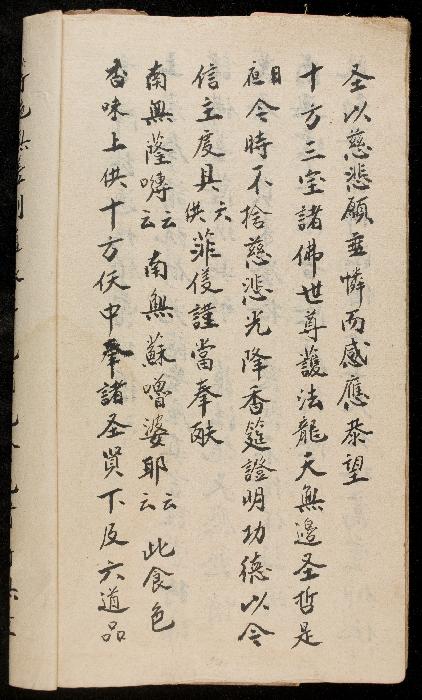 圣以慈悲願垂憐而感應恭望
十方三宝諸佛世尊護法龍天無邊圣哲是
日夜今時不捨慈悲光降香筵證明功德以今
信主度具六供菲儀謹當奉献
南無薩嚩云云南無蘇嚕婆耶云云此食色
香味上供十方仸中奉諸圣賢下及六道品